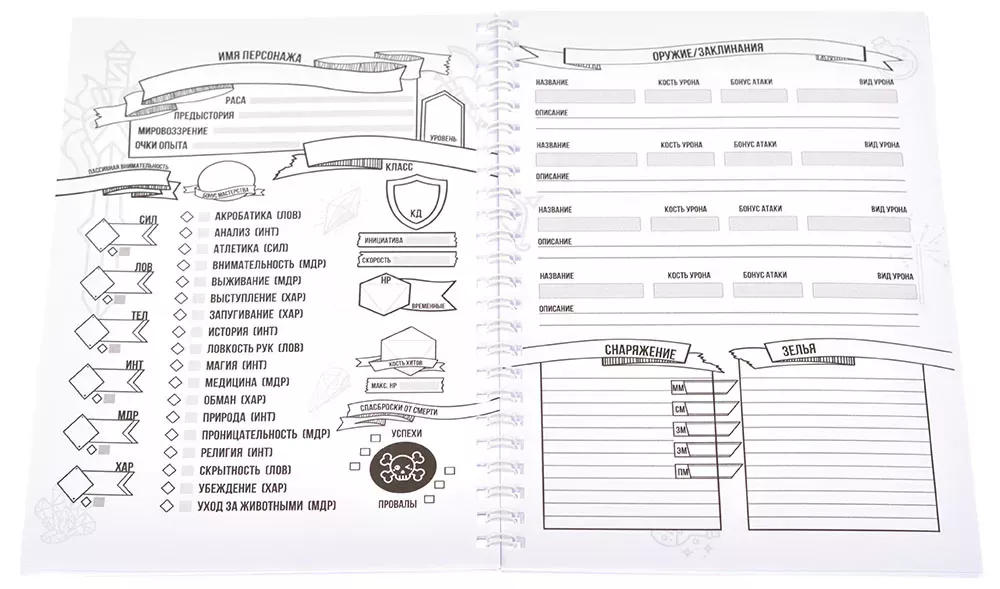 ИМЯ ПЕРСОНАЖА
РАСА
ПРЕДЫСТОРИЯ
МИРОВОЗЗРЕНИЕ
ОЧКИ ОПЫТА
УРОВЕНЬ
КЛАСС
ПАССИВНАЯ ВНИМАТЕЛЬНОСТЬ
БОНУС МАСТЕРСТВА
СИЛ
ЛОВ
ТЕЛ
ИНТ
МДР
ХАР
АКРОБАТИКА (ЛОВ)
АНАЛИЗ (ИНТ)
АТЛЕТИКА (СИЛ)
ВНИМАТЕЛЬНОСТЬ (МДР)
ВЫЖИВАНИЕ (МДР)
ВЫСТУПЛЕНИЕ (ХАР)
ЗАПУГИВАНИЕ (ХАР)
ИСТОРИЯ (ИНТ)
ЛОВКОСТЬ РУК (ЛОВ)
МАГИЯ (ИНТ)
МЕДИЦИНА (МДР)
ОБМАН (ХАР)
ПРИРОДА (ИНТ)
ПРОНИЦАТЕЛЬНОСТЬ (МДР)
РЕЛИГИЯ (ИНТ)
СКРЫТНОСТЬ (ЛОВ)
УБЕЖДЕНИЕ (ХАР)
УХОД ЗА ЖИВОТНЫМИ (МДР)
КД
ИНИЦИАТИВА
СКОРОСТЬ
HP
ВРЕМЕННЫЕ
КОСТЬ ХИТОВ
МАКС. HP
СПАСБРОСКИ ОТ СМЕРТИ
УСПЕХИ
ПРОВАЛЫ
ОРУЖИЕ/ЗАКЛИНАНИЯ
НАЗВАНИЕ КОСТЬ УРОНА БОНУС АТАКИ ВИД УРОНА
ОПИСАНИЕ
НАЗВАНИЕ КОСТЬ УРОНА БОНУС АТАКИ ВИД УРОНА
ОПИСАНИЕ
НАЗВАНИЕ КОСТЬ УРОНА БОНУС АТАКИ ВИД УРОНА
ОПИСАНИЕ
НАЗВАНИЕ КОСТЬ УРОНА БОНУС АТАКИ ВИД УРОНА
ОПИСАНИЕ
СНАРЯЖЕНИЕ
ММ
СМ
ЗМ
ЗМ
ПМ
ЗЕЛЬЯ